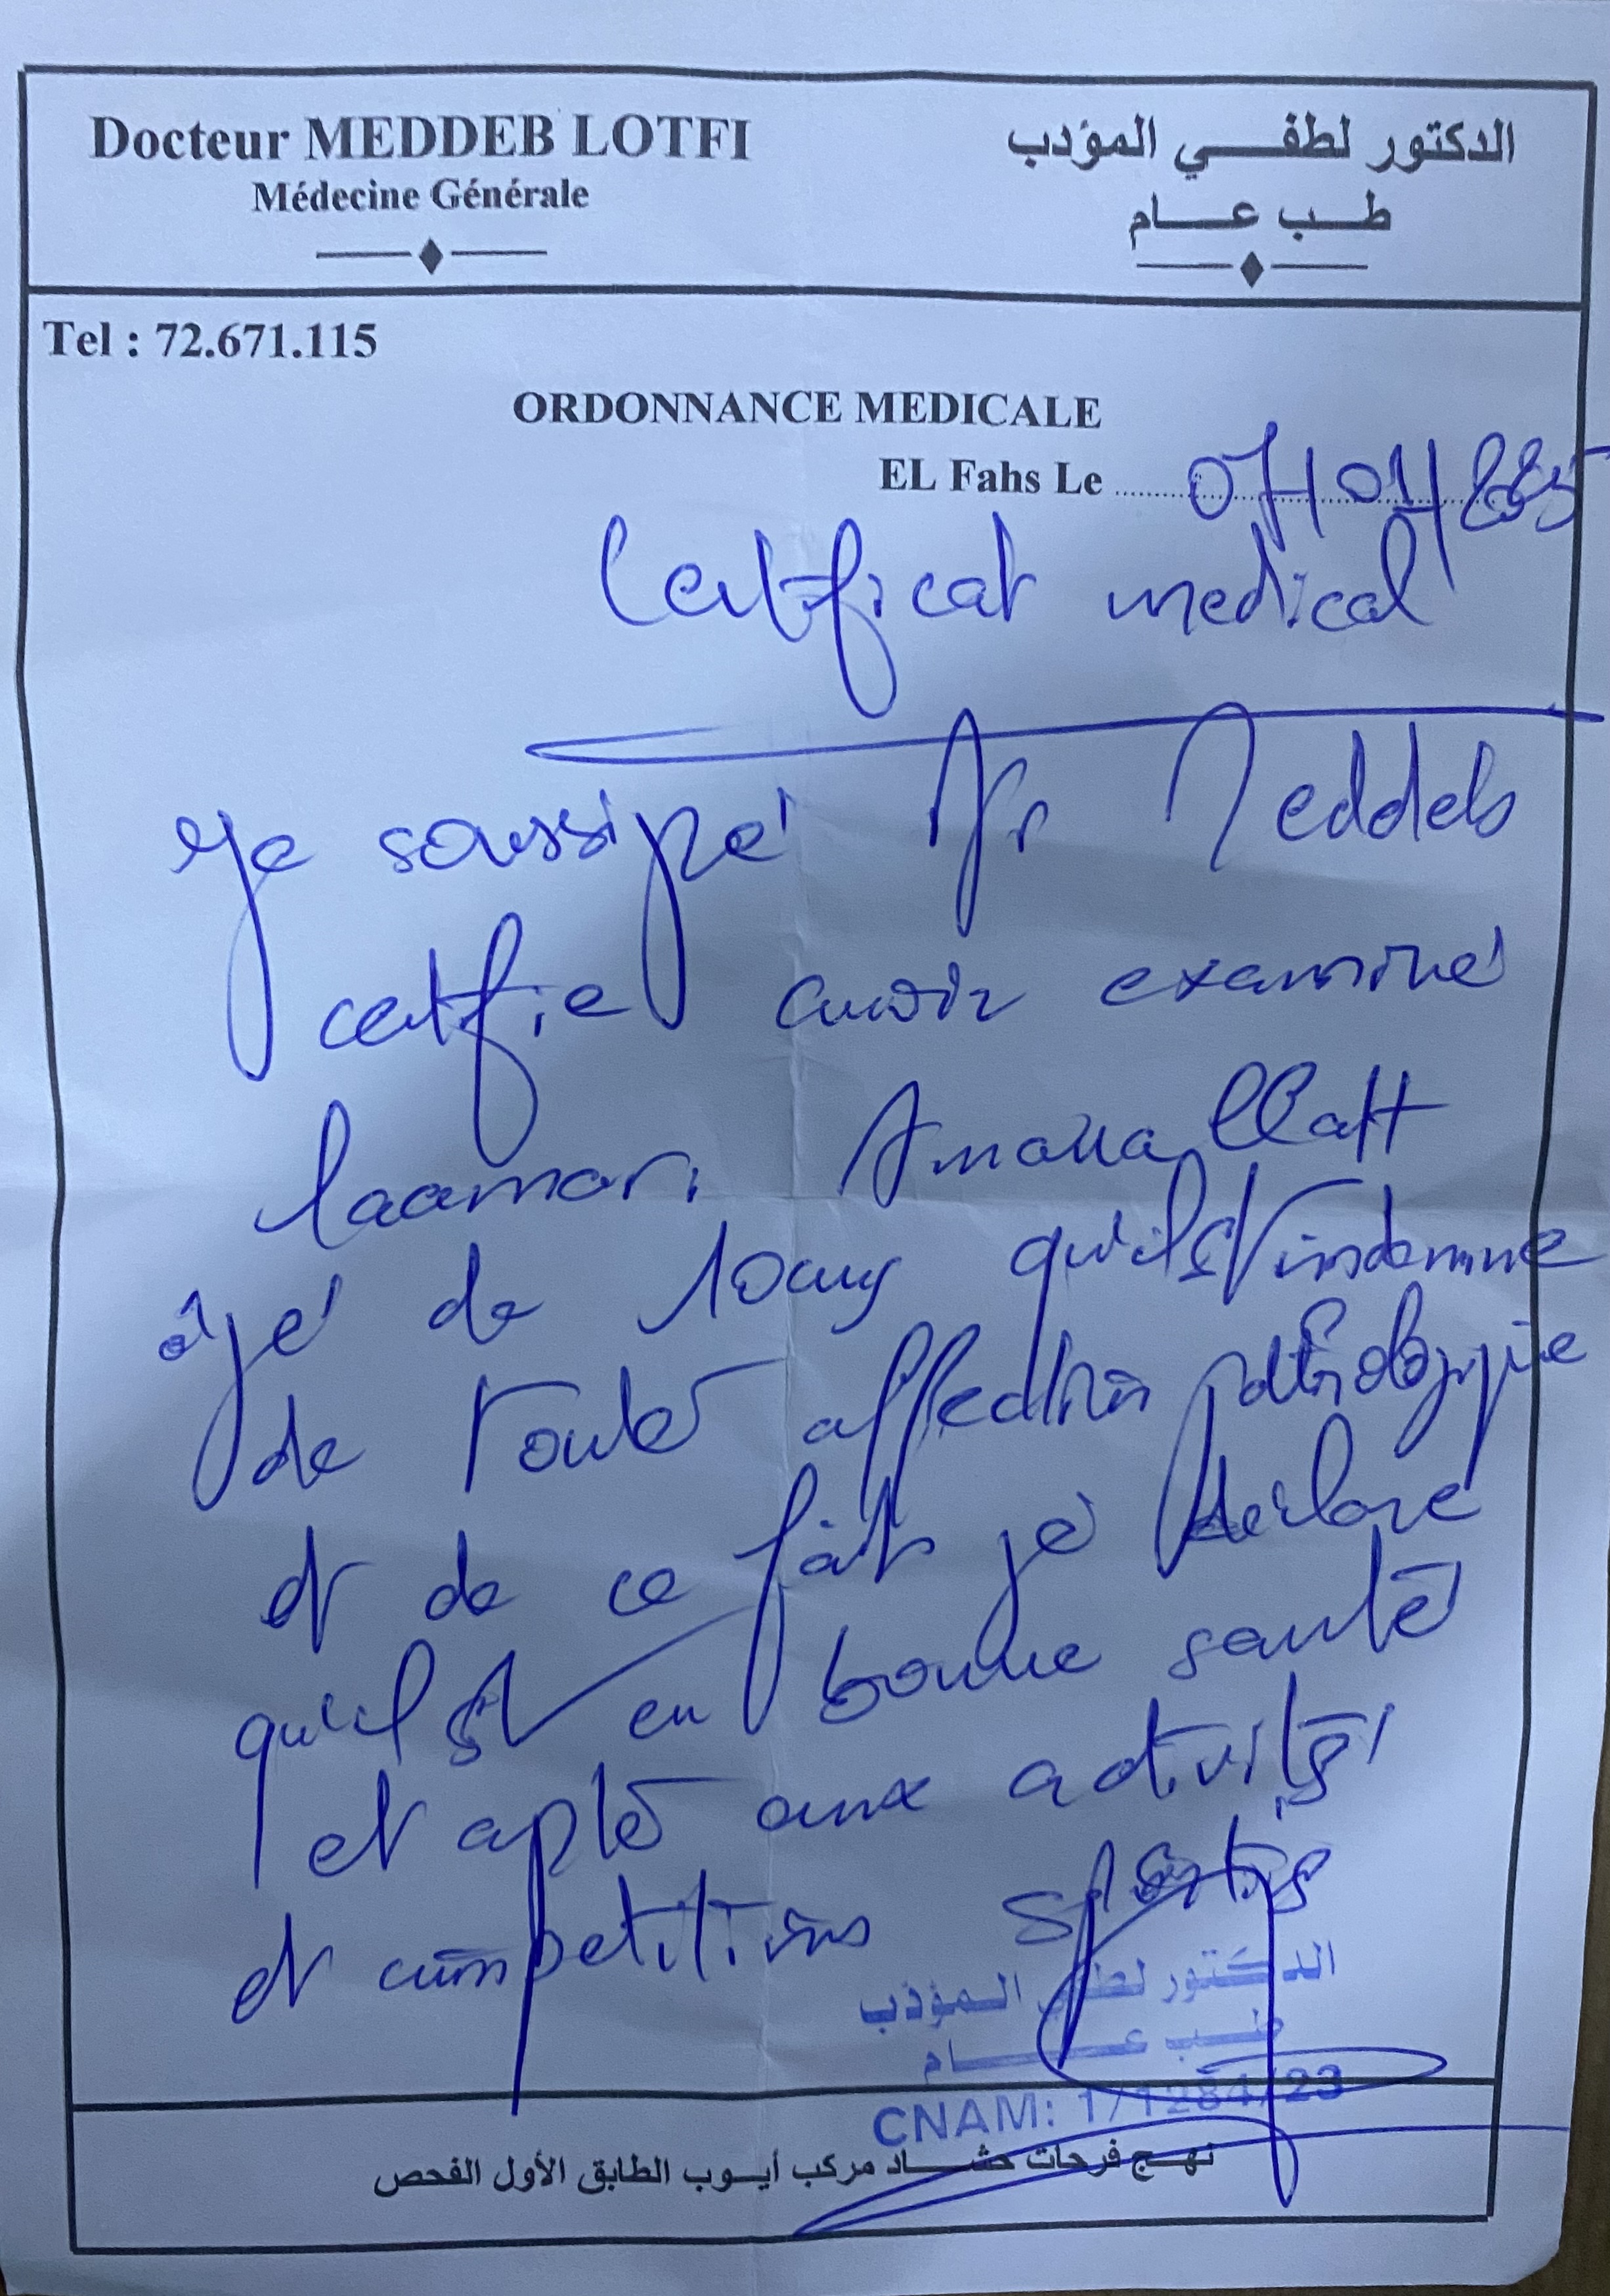 Docteur MEDDEB LOTFI
Médecine Générale
الدكتور لطفي المؤدب
طب عام
Tel : 72.671.115
ORDONNANCE MEDICALE
EL Fahs Le 07/01/
Certificat medical
Je soussigné Dr Meddeb
certifie avoir examiné
Laamari
âgé de 10 ans qu'il est indemne
de toute affection pathologie
et de ce fait je déclare
qu'il est en bonne santé
et apte aux activités
et compétitions sportives
الدكتور لطفي المؤدب
طب عام
CNAM: 1/1284/23
نهج فرحات حشاد مركب أيوب الطابق الأول الفحص